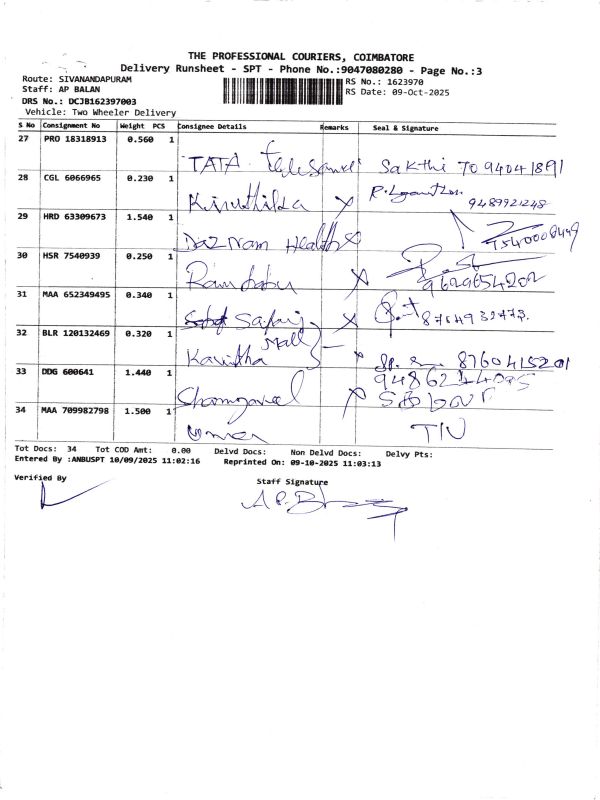 THE PROFESSIONAL COURIERS, COIMBATORE
Delivery Runsheet - SPT - Phone No.:9047080280 - Page No.:3
Route: SIVANANDAPURAM
RS No.: 1623970
Staff: AP BALAN
RS Date: 09-Oct-2025
DRS No.: DCJB162397003
Vehicle: Two Wheeler Delivery
S No Consignment No Weight PCS Consignee Details Remarks Seal & Signature
27 PRO 18318913 0.560 1
TATA Sakthi 7094041891
28 CGL 6066965 0.230 1
X 9489921248
29 HRD 63309673 1.540 1
Health X
30 HSR 7540939 0.250 1
Rambabu X 9629654202
31 MAA 652349495 0.340 1
Safari X
Mall
32 BLR 120132469 0.320 1
Kavitha 8760415201
33 DDG 600641 1.440 1
X
34 MAA 709982798 1.500 1
Tot Docs: 34 Tot COD Amt: 0.00 Delvd Docs: Non Delvd Docs: Delvy Pts:
Entered By :ANBUSPT 10/09/2025 11:02:16 Reprinted On: 09-10-2025 11:03:13
Verified By
Staff Signature